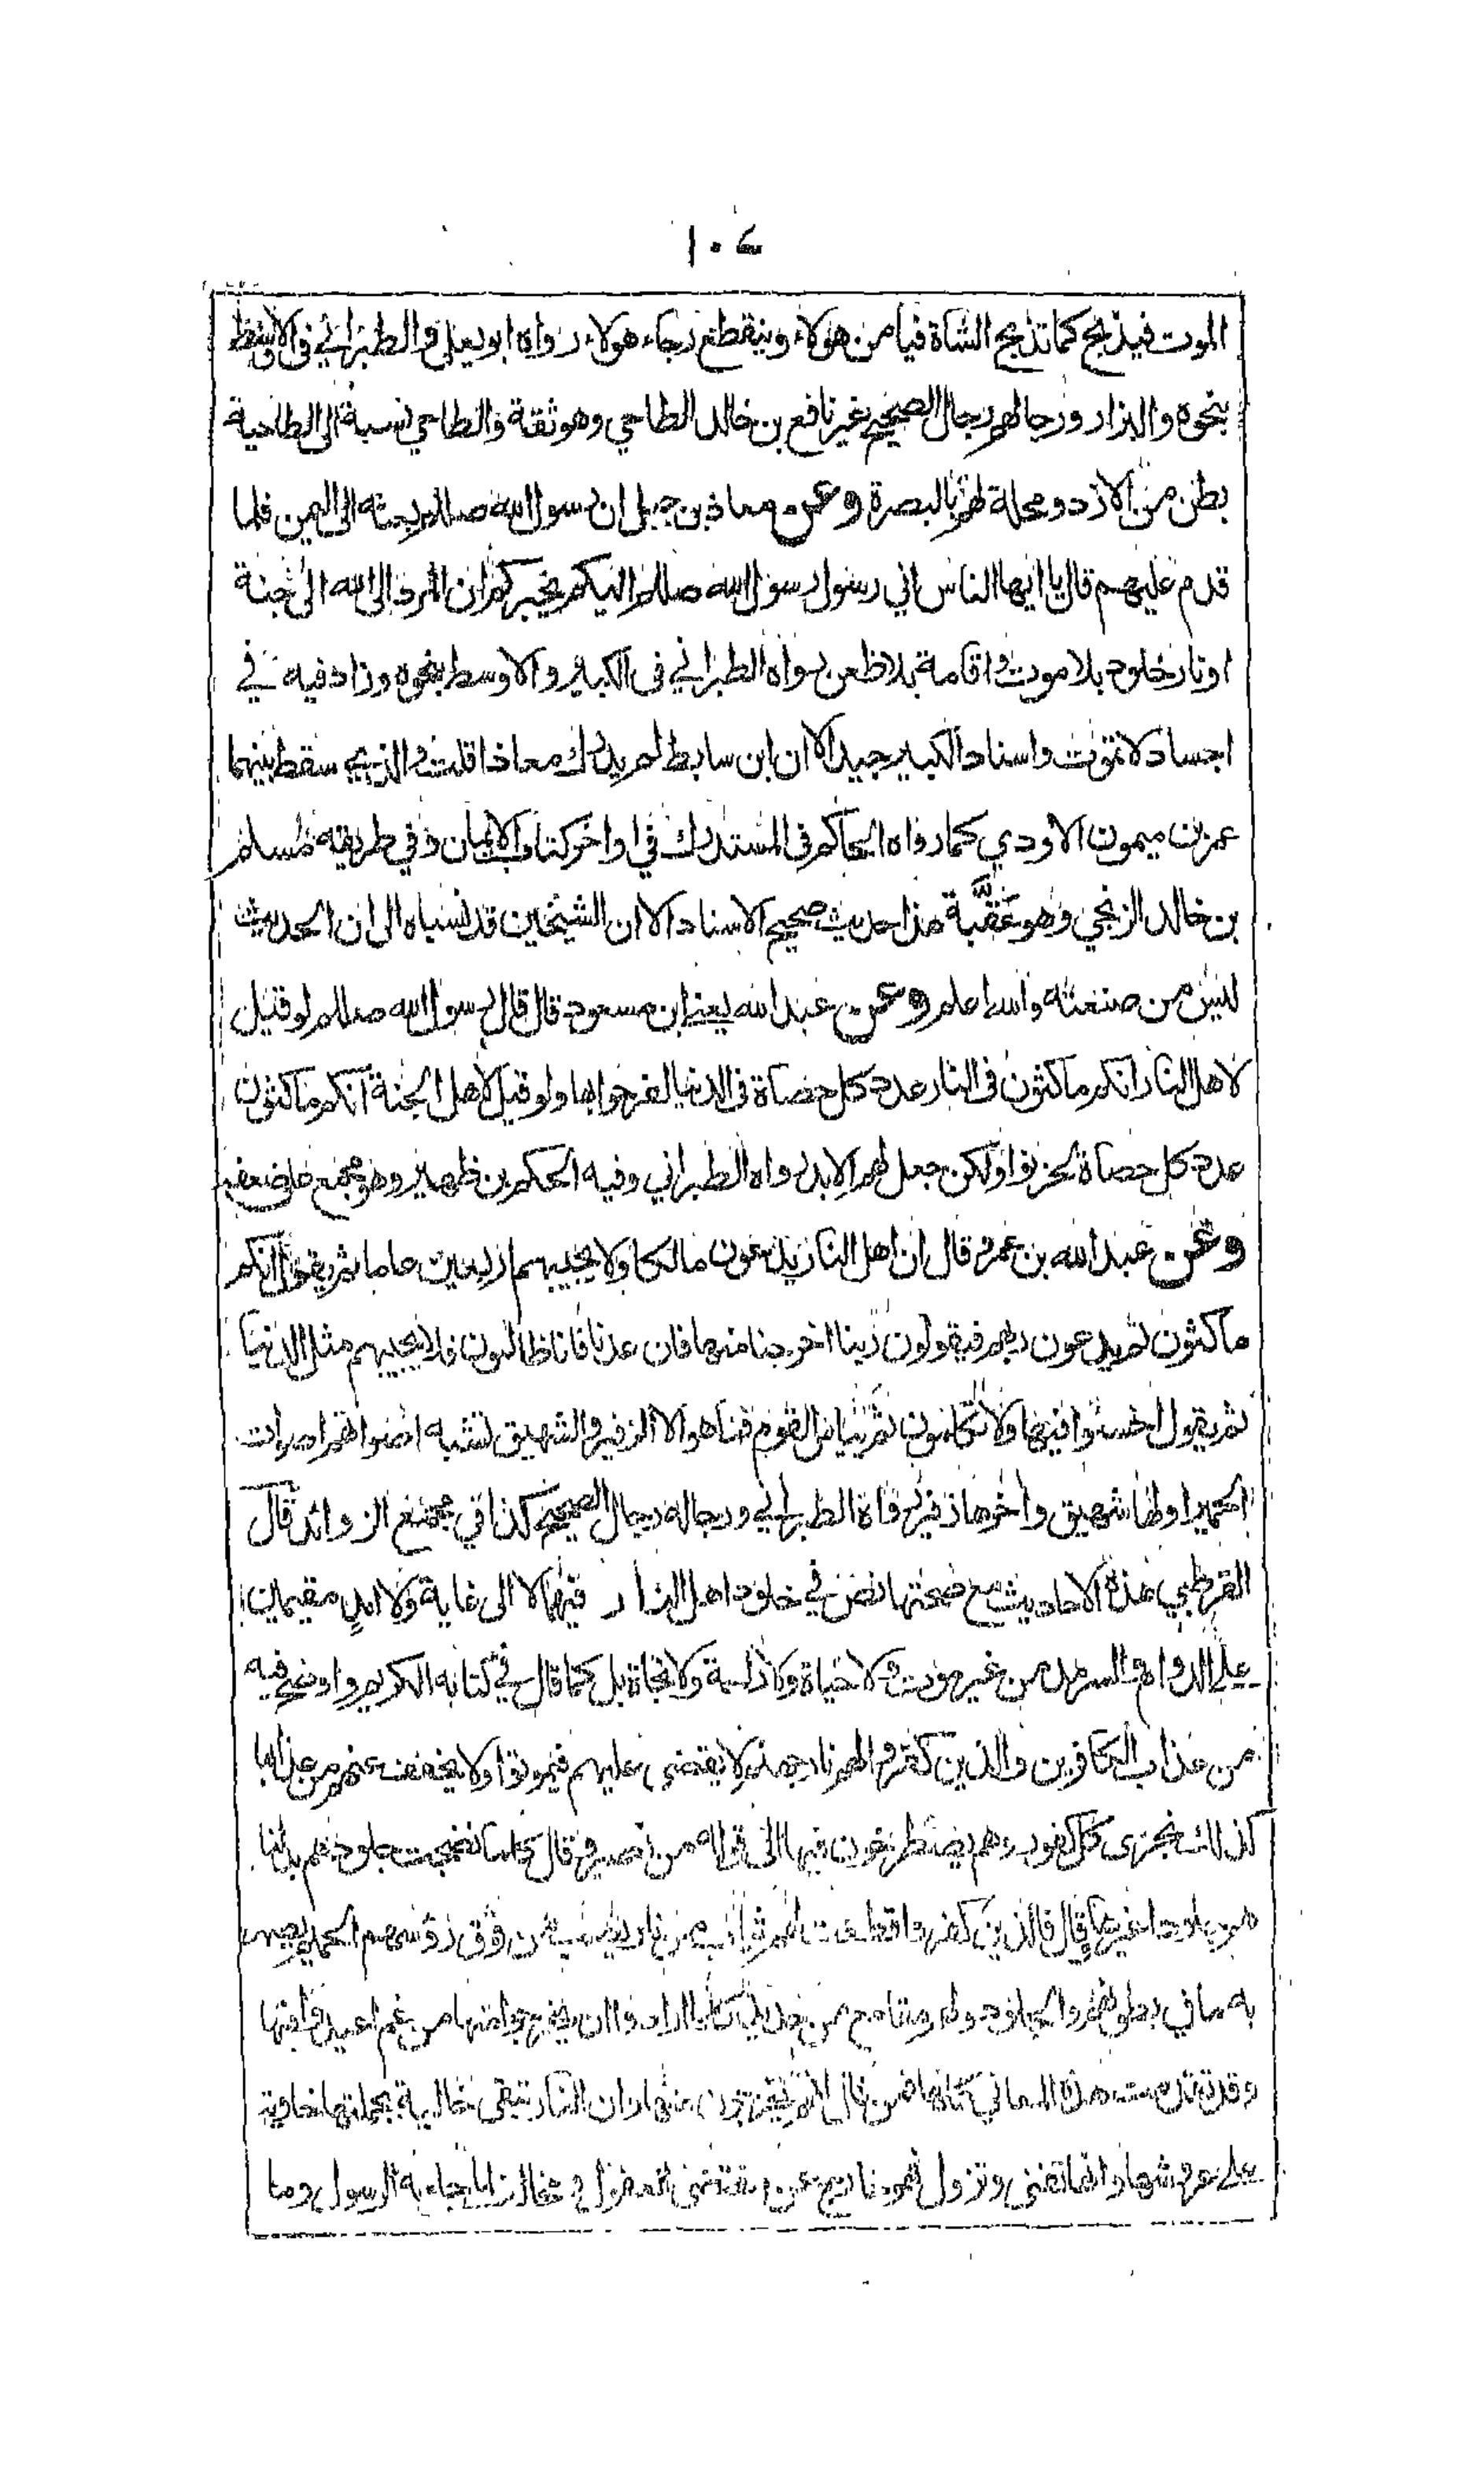 ١٠٤
الموت فيذبح كما تذبح الشاة فيأمن هؤلاء وينقطع رجاء هولاء رواه ابو يعلى والطبراني في الاوسط
بنحوه والبزار ورجالهم رجال الصحيح غير نافع بن خالد الطاحي وهو ثقة والطاحي نسبة الى الطاحية
بطن من الازد ومحلة لهم بالبصرة وعن معاذ بن جبل ان رسول الله صللم بعثه الى اليمن فلما
قدم عليهم قال يا ايها الناس اني رسول رسول الله صللم اليكم يخبركم ان المرد الى الله الى جنة
او نار خلود بلا موت واقامة بلا ظعن رواه الطبراني في الكبير والاوسط بنحوه وزاد فيه في
اجساد لا تموت واسناد الكبير جيد الا ان ابن سابط لم يدرك معاذا قلت والذي سقط بينهما
عمرو بن ميمون الاودي كما رواه الحاكم في المستدرك في اواخر كتاب الايمان وفي طريقه مسلم
بن خالد الزنجي وهو عقبة هذا حديث صحيح الاسناد الا ان الشيخين قد نسباه الى ان الحديث
ليس من صنعته والله اعلم وعن عبد الله يعني ابن مسعود قال قال رسول الله صللم لو قيل
لاهل النار انكم ماكثون في النار عدد كل حصاة في الدنيا لفرحوا بها ولو قيل لاهل الجنة انكم ماكثون
عدد كل حصاة لحزنوا ولكن جعل لهم الابد رواه الطبراني وفيه الحكم بن ظهير وهو مجمع على ضعفه
وعن عبد الله بن عمرو قال ان اهل النار يدعون مالكا ولا يجيبهم اربعين عاما ثم يقول انكم
ماكثون ثم يدعون ربهم فيقولون ربنا اخرجنا منها فان عدنا فانا ظالمون فلا يجيبهم مثل الدنيا
ثم يقول اخسئوا فيها ولا تكلمون ثم ييأس القوم فما هو الا الزفير والشهيق تشبه اصواتهم اصوات
الحمير اولها شهيق واخرها زفير رواه الطبراني ورجاله رجال الصحيح كذا في مجمع الزوائد قال
القرطبي هذه الاحاديث مع صحتها نص في خلود اهل النار فيها لا الى غاية ولا امد مقيمين
على الدوام والسرمد من غير موت ولا حياة ولا راحة ولا نجاة بل كما قال في كتابه الكريم واوضح فيه
من عذاب الكافرين والذين كفروا لهم نار جهنم لا يقضى عليهم فيموتوا ولا يخفف عنهم من عذابها
كذلك نجزى كل كفور وهم يصطرخون فيها الى قوله من نصير وقال كلما نضجت جلودهم بدلنا
هم جلودا غيرها وقال فالذين كفروا قطعت لهم ثياب من نار يصب من فوق رؤسهم الحميم يصهر
به ما في بطونهم والجلود ولهم مقامع من حديد كلما ارادوا ان يخرجوا منها من غم اعيدوا فيها
وقد تقدمت هذه المعاني كلها فمن قال انهم يخرجون منها وان النار تبقى خالية بجملتها خاوية
على عروشها وانها تفنى وتزول فهو خارج عن مقتضى المعقول ومخالف لما جاء به الرسول وما